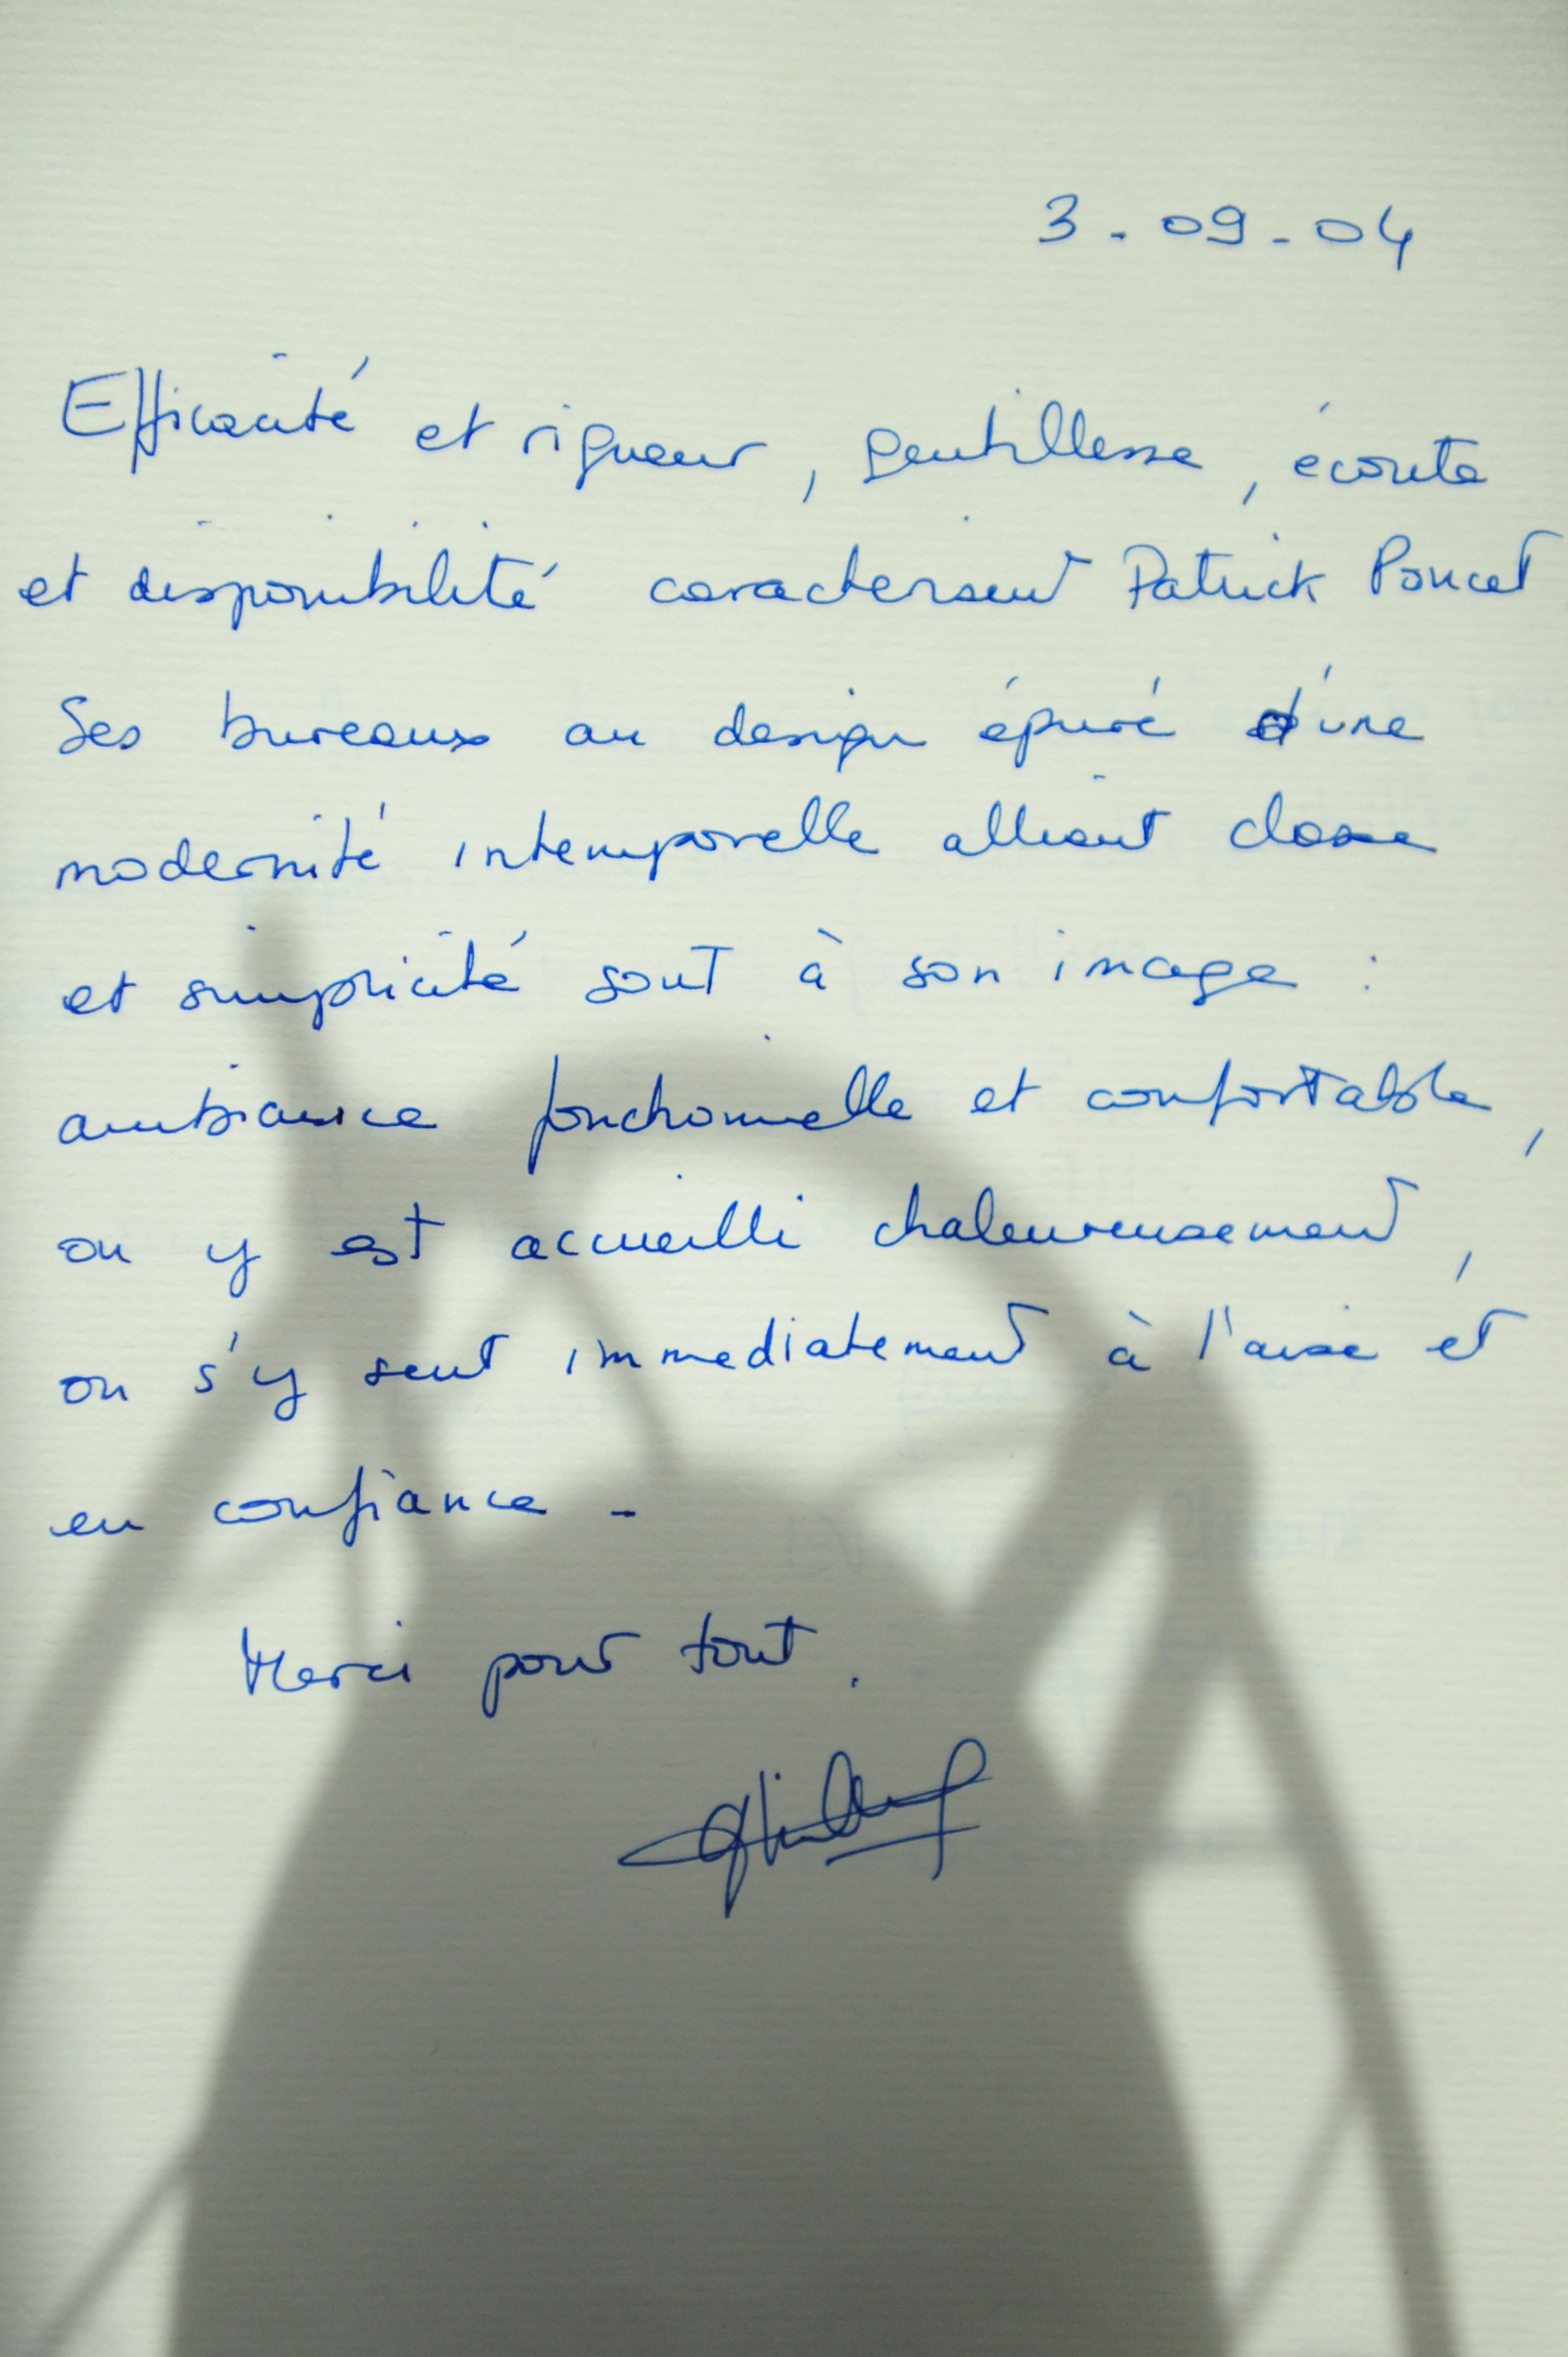 3-09-04
Efficacité et rigueur, gentillesse, écoute
et disponibilité caracterisent Patrick Poncet
Ses bureaux au design épuré d'une
modernité intemporelle alliant classe
et simplicité sont à son image :
ambiance fonctionnelle et confortable,
on y est accueilli chaleureusement,
on s'y sent immediatement à l'aise et
en confiance -
Merci pour tout.